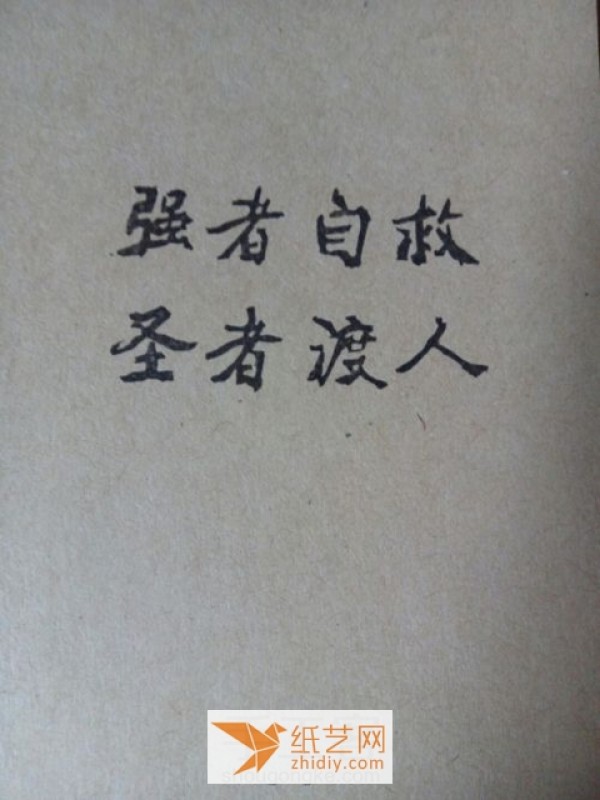 强者自救
圣者渡人
纸艺网
zhidiy.com
shougongke.com